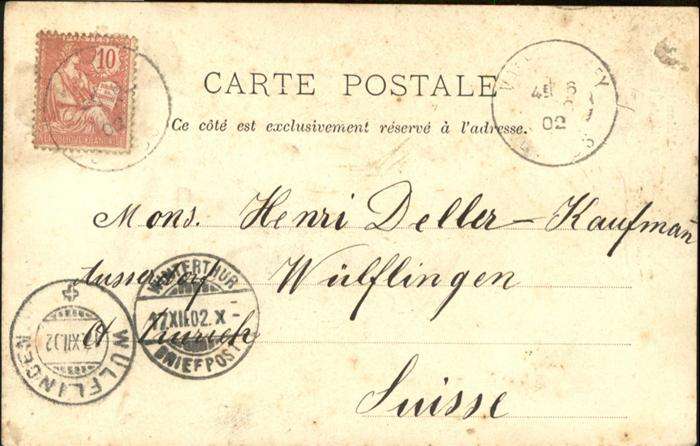 10
CARTE POSTALE
Ce côté est exclusivement réservé à l'adresse.
02
Mons. Henri Deller-Kaufman
Ausserdorf Wülflingen
Ct Zürich
Suisse
WINTERTHUR
17.XII.02.X-
BRIEFPOST
WÜLFLINGEN
XII.02